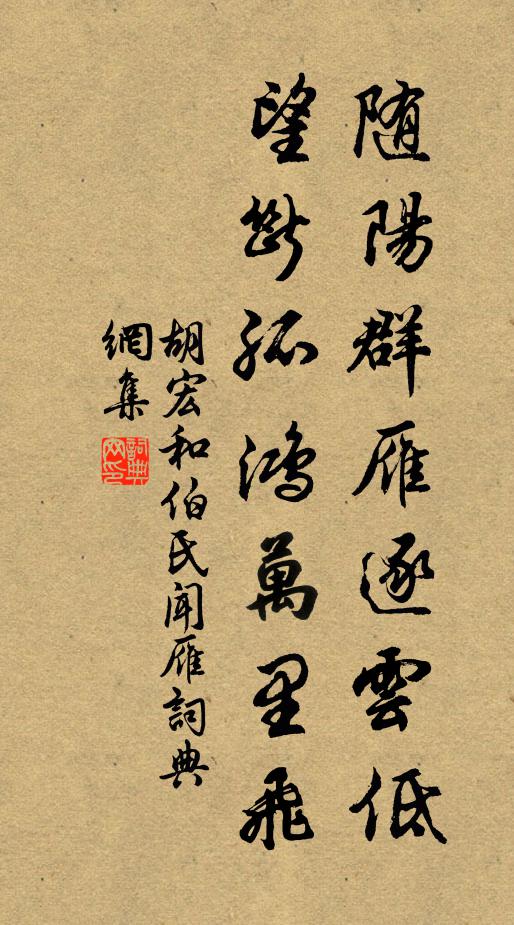 随陽群雁逐雲低
望斷孤鴻萬里飛
胡宏和伯氏聞雁詞典
網集
詞典
网印